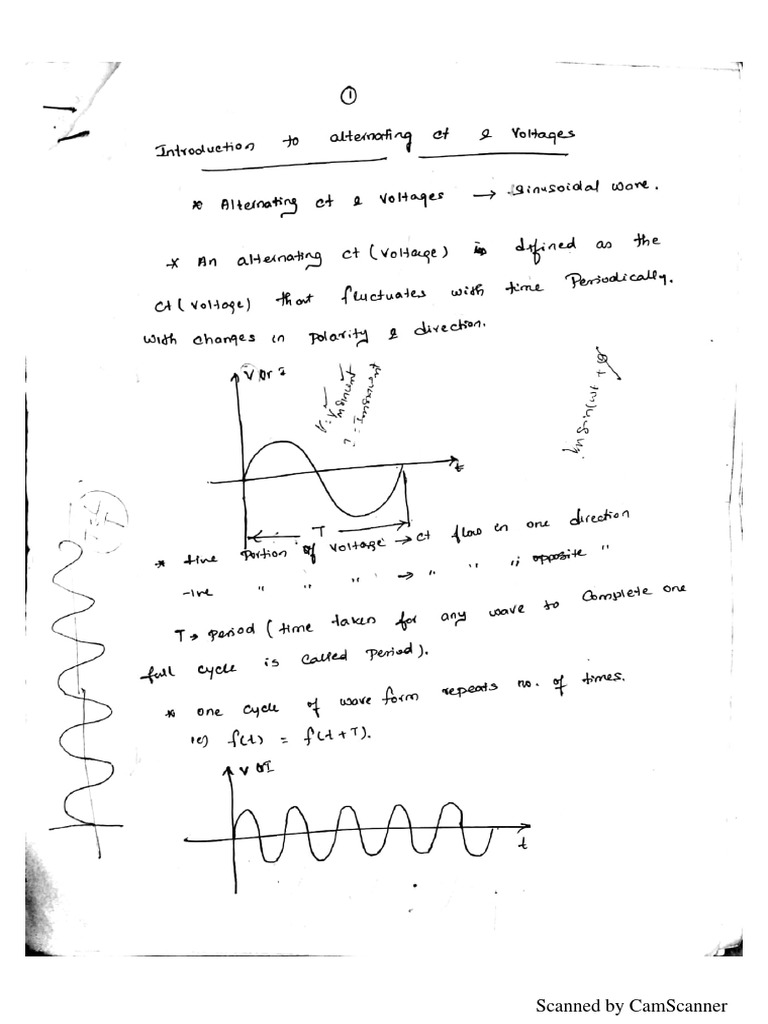 ①
Introduction to alternating ct & Voltages
* Alternating ct & Voltages → Sinusoidal wave.
* An alternating ct (Voltage) is defined as the
ct (Voltage) that fluctuates with time Periodically.
with changes in polarity & direction.
V or i
V = Vm sinωt
I = Im sinωt
Vm Sin(ωt + φ
t
T
* +ive Portion of Voltage → ct flow in one direction
-ive " " " → " " " opposite "
T → Period (time taken for any wave to Complete one
full cycle is called Period).
* one cycle of wave form repeats no. of times.
ie) f(t) = f(t+T).
V or I
t
Scanned by CamScanner